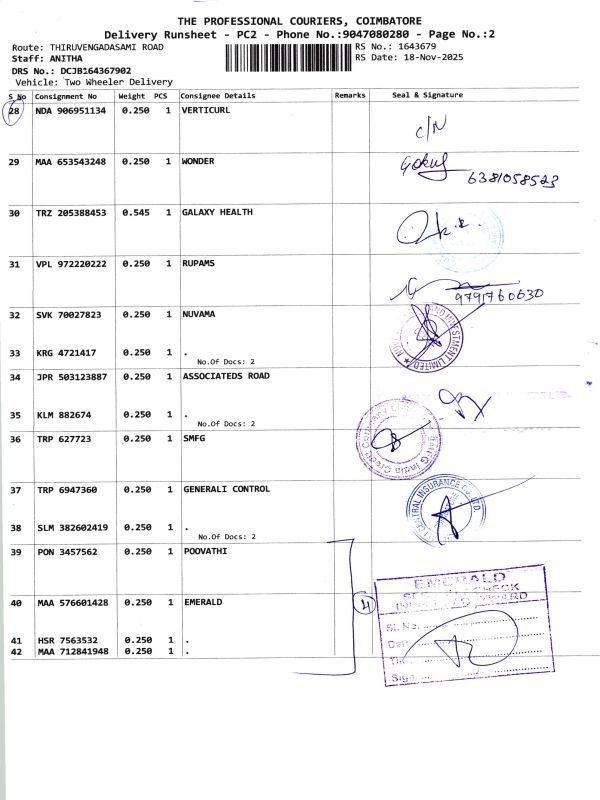 THE PROFESSIONAL COURIERS, COIMBATORE
Delivery Runsheet - PC2 - Phone No.:9047080280 - Page No.:2
Route: THIRUVENGADASAMI ROAD RS No.: 1643679
Staff: ANITHA RS Date: 18-Nov-2025
DRS No.: DCJB164367902
Vehicle: Two Wheeler Delivery
S No Consignment No Weight PCS Consignee Details Remarks Seal & Signature
28 NDA 906951134 0.250 1 VERTICURL
C/N
29 MAA 653543248 0.250 1 WONDER
Gokul
6381058523
30 TRZ 205388453 0.545 1 GALAXY HEALTH
31 VPL 972220222 0.250 1 RUPAMS
9791760630
32 SVK 70027823 0.250 1 NUVAMA
33 KRG 4721417 0.250 1 .
No.Of Docs: 2
34 JPR 503123887 0.250 1 ASSOCIATEDS ROAD
35 KLM 882674 0.250 1 .
No.Of Docs: 2
36 TRP 627723 0.250 1 SMFG
SMFG India Credit Company
37 TRP 6947360 0.250 1 GENERALI CONTROL
CENTRAL INSURANCE CO. LTD.
38 SLM 382602419 0.250 1 .
No.Of Docs: 2
39 PON 3457562 0.250 1 POOVATHI
40 MAA 576601428 0.250 1 EMERALD
4
EMERALD
CHECK
INWARD
Sl. No.
Date
Sign
41 HSR 7563532 0.250 1 .
42 MAA 712841948 0.250 1 .